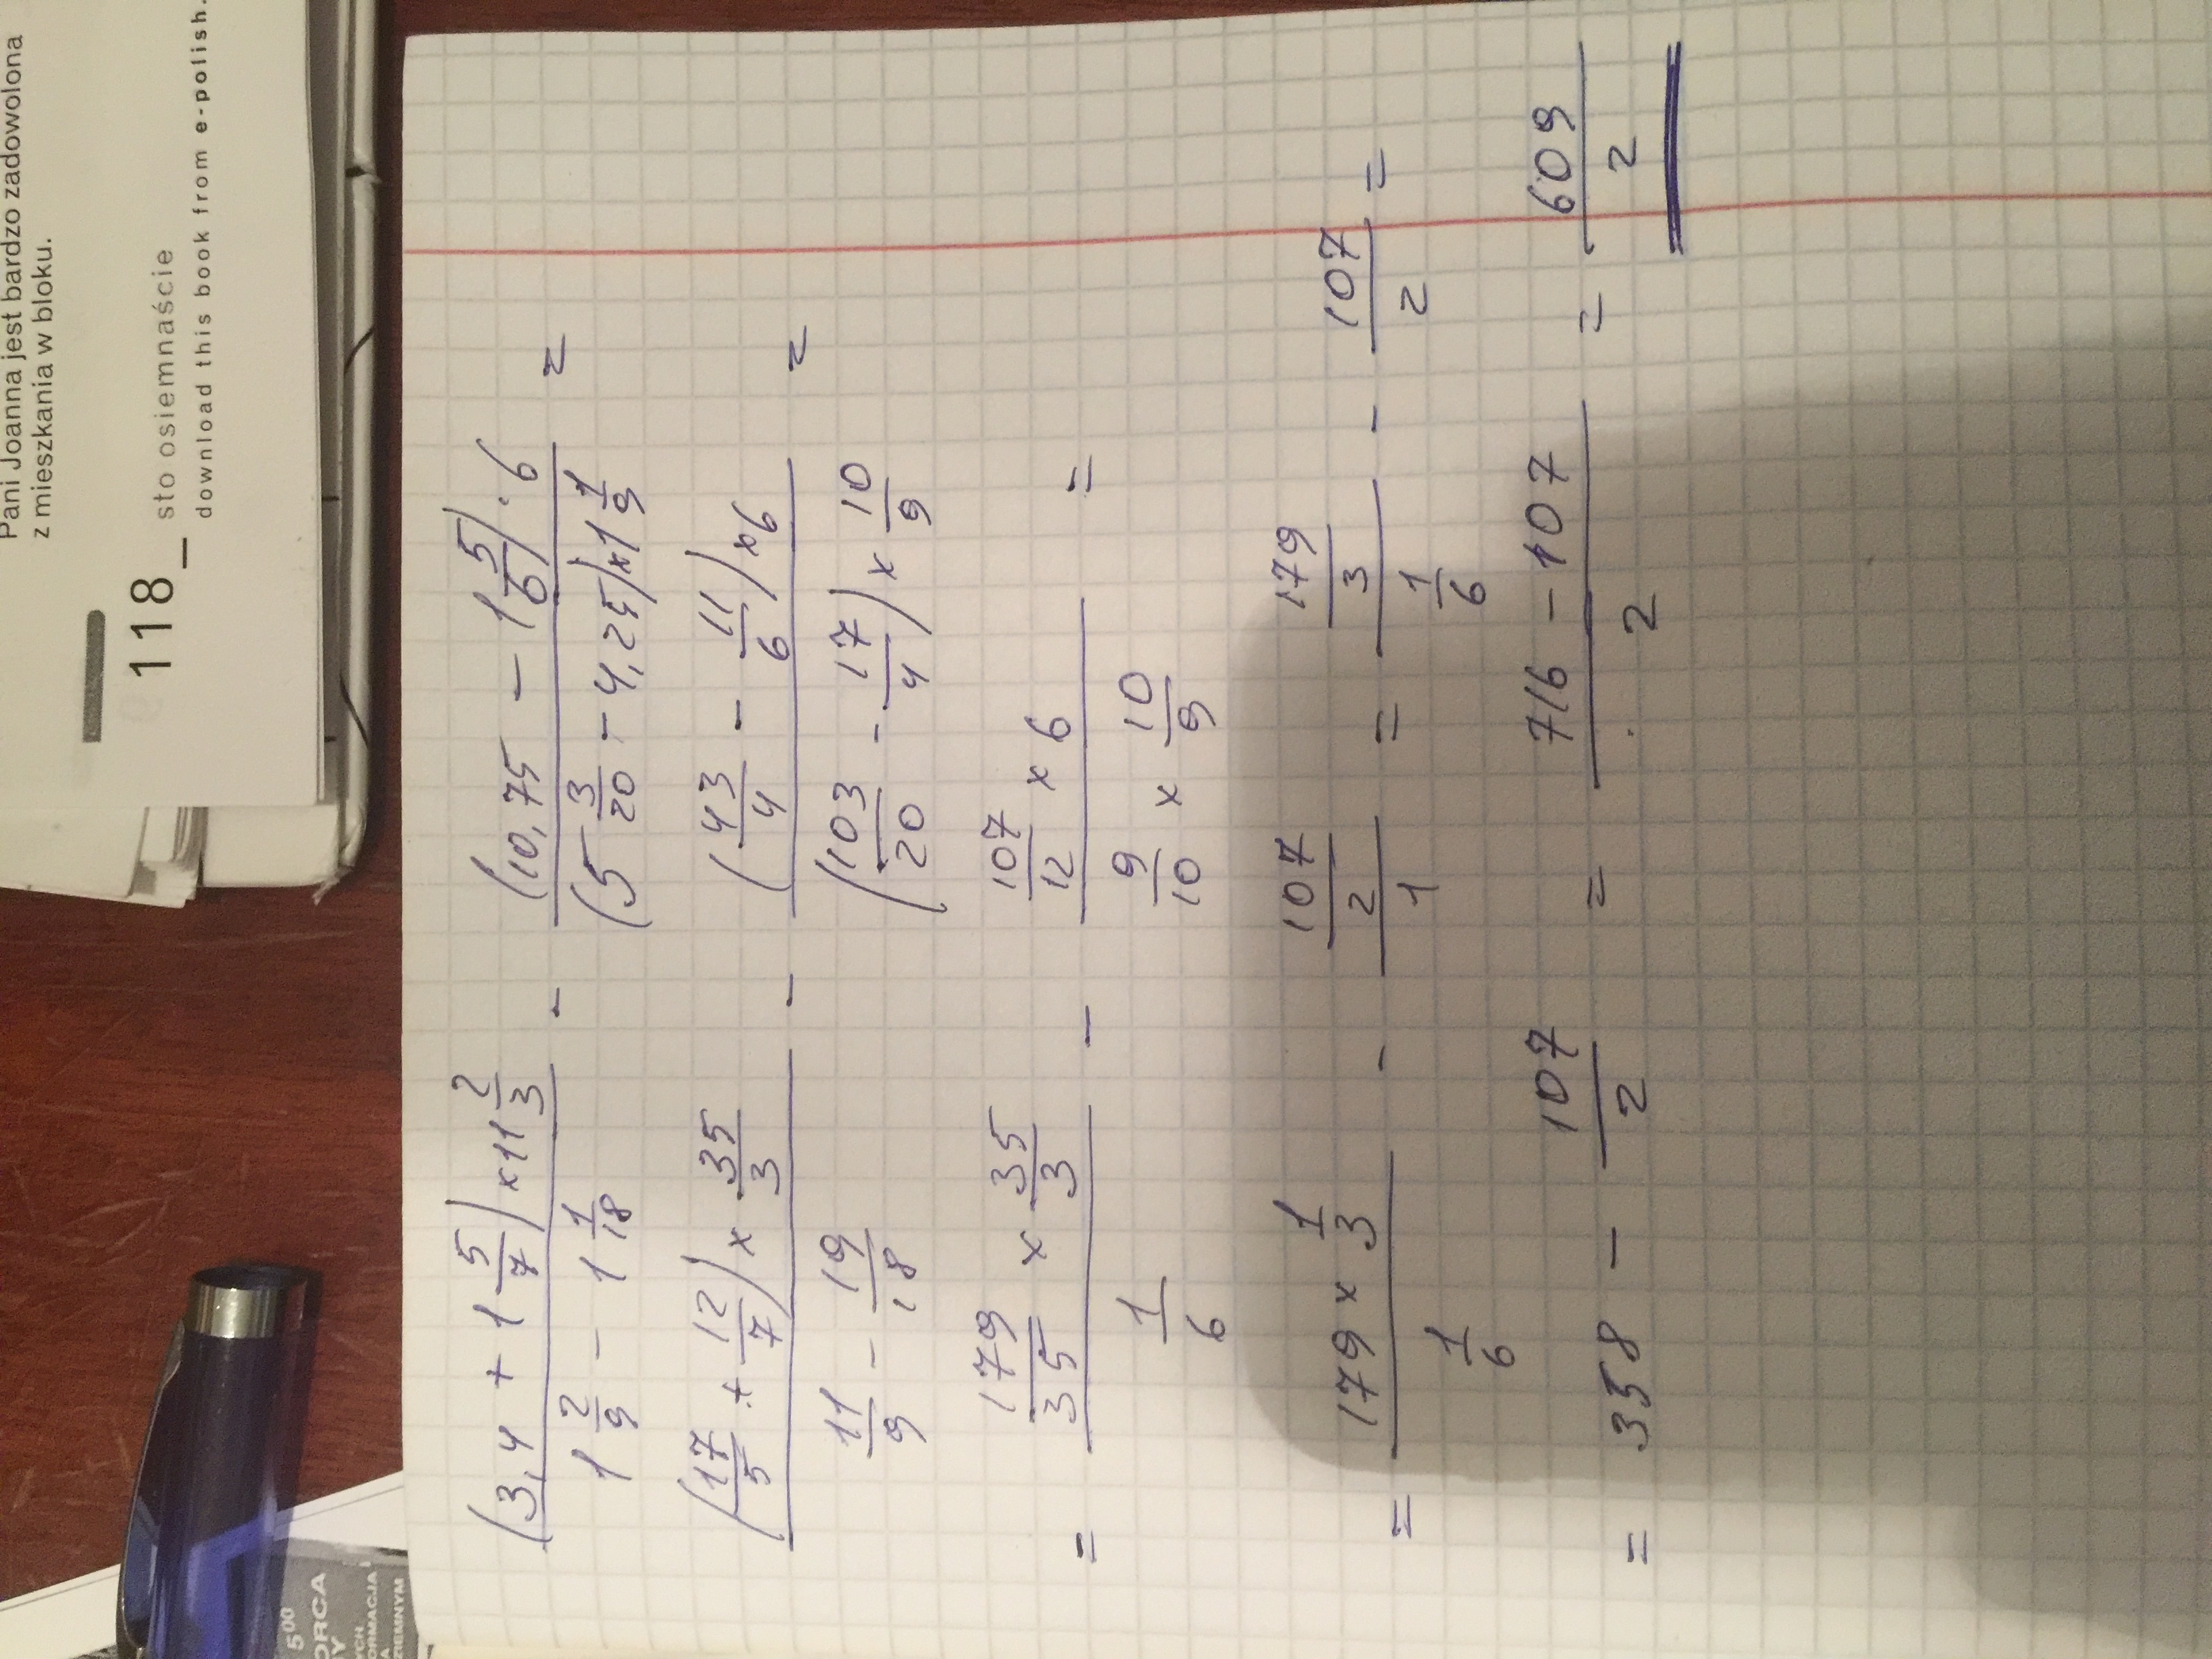 Pani Joanna jest bardzo zadowolona
z mieszkania w bloku.
118_ sto osiemnaście
download this book from e-polish.
(3,4 + 1 5/7) x 11 2/3 / 1 2/9 - 1 1/18 - (10,75 - 1 5/6) · 6 / (5 3/20 - 4,25) x 1 1/9 =
(17/5 + 12/7) x 35/3 / 11/9 - 19/18 - (43/4 - 11/6) x 6 / (103/20 - 17/4) x 10/9 =
= 179/35 x 35/3 / 1/6 - 107/12 x 6 / 9/10 x 10/9 =
= 179 x 1/3 / 1/6 - 107/2 / 1 = 179/3 / 1/6 - 107/2 =
= 358 - 107/2 = 716 - 107 / 2 = 609/2
5⁰⁰
ORCA